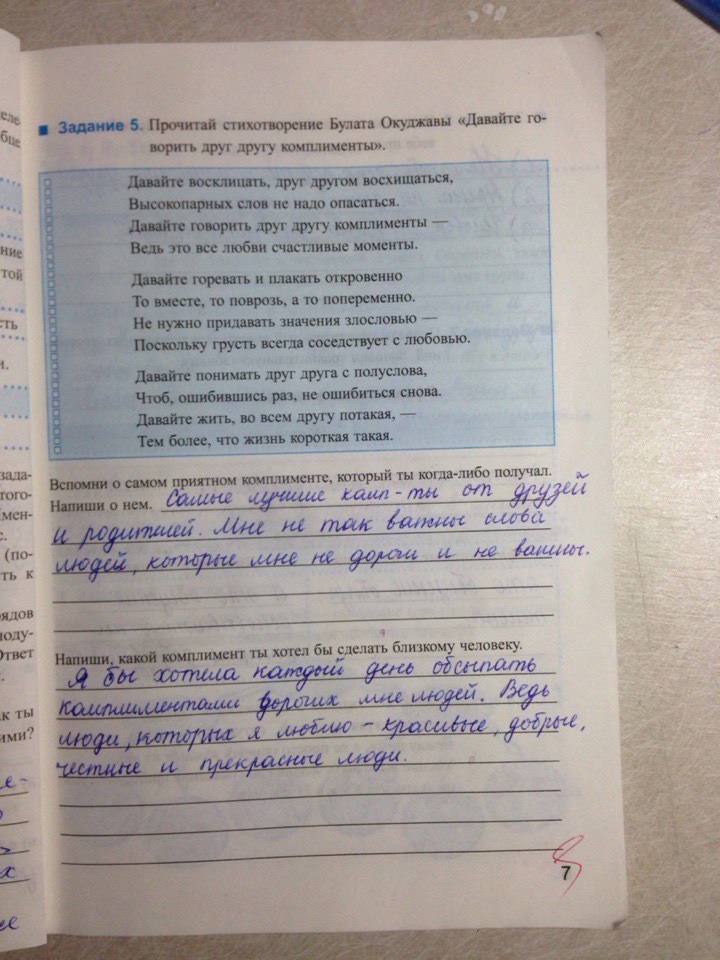 Задание 5. Прочитай стихотворение Булата Окуджавы «Давайте го-
ворить друг другу комплименты».
Давайте восклицать, друг другом восхищаться,
Высокопарных слов не надо опасаться.
Давайте говорить друг другу комплименты —
Ведь это все любви счастливые моменты.
Давайте горевать и плакать откровенно
То вместе, то поврозь, а то попеременно.
Не нужно придавать значения злословью —
Поскольку грусть всегда соседствует с любовью.
Давайте понимать друг друга с полуслова,
Чтоб, ошибившись раз, не ошибиться снова.
Давайте жить, во всем другу потакая, —
Тем более, что жизнь короткая такая.
Вспомни о самом приятном комплименте, который ты когда-либо получал.
Напиши о нем. Самые лучшие комп-ты от друзей
и родителей. Мне не так важны слова
людей, которые мне не дороги и не важны.
Напиши, какой комплимент ты хотел бы сделать близкому человеку.
Я бы хотела каждый день обсыпать
комплиментами дорогих мне людей. Ведь
люди, которых я люблю - красивые, добрые,
честные и прекрасные люди.
7